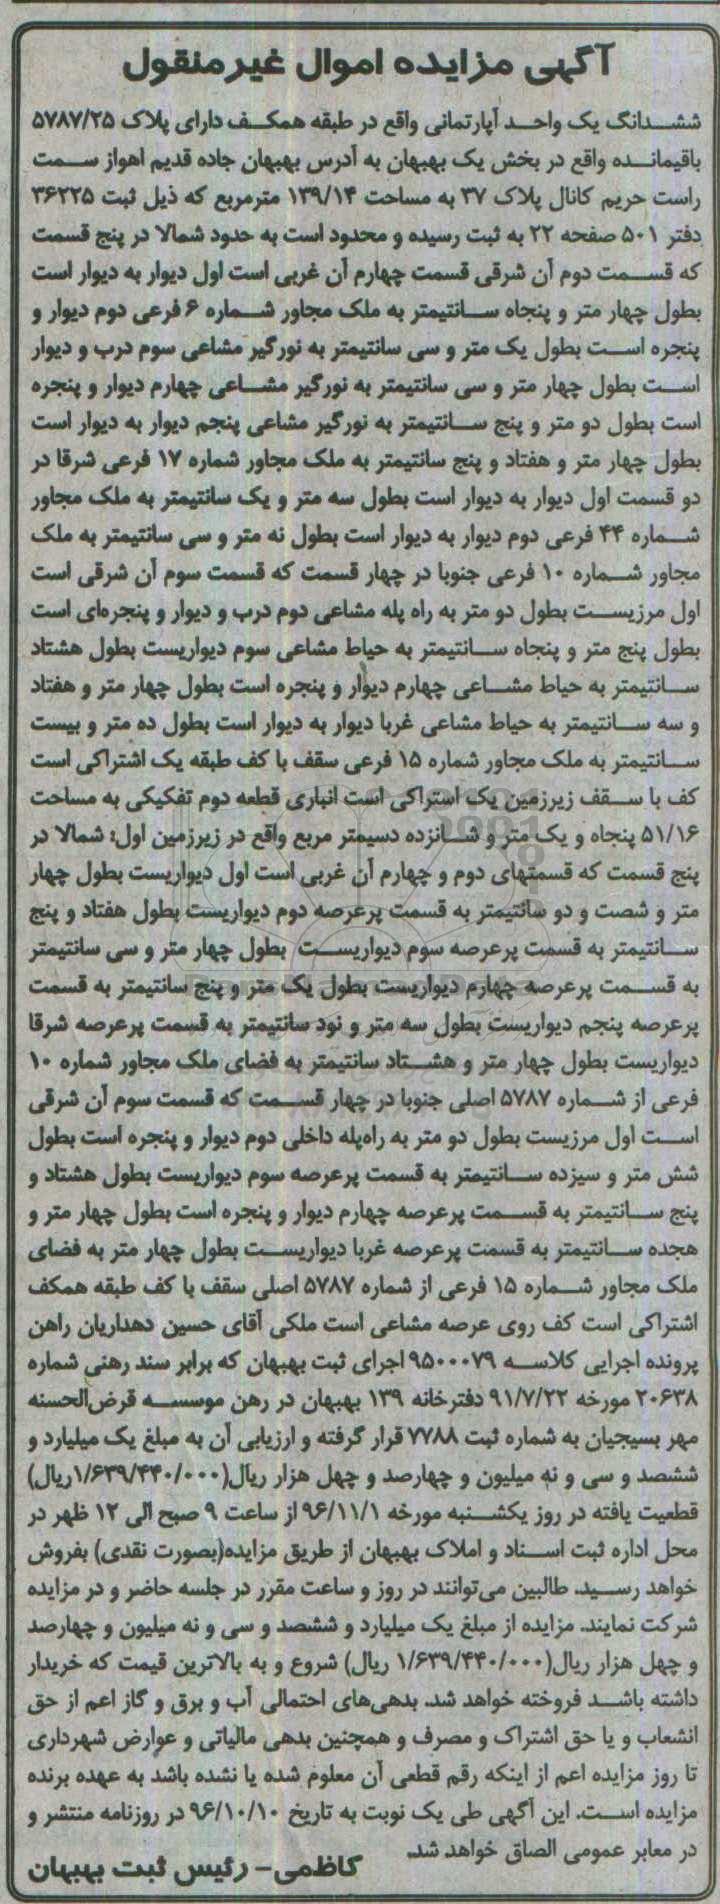 آگهی مزایده اموال غیرمنقول
ششدانگ یک واحد آپارتمانی واقع در طبقه همکف دارای پلاک ۵۷۸۷/۲۵
باقیمانده واقع در بخش یک بهبهان به آدرس بهبهان جاده قدیم اهواز سمت
راست حریم کانال پلاک ۳۷ به مساحت ۱۳۹/۱۴ مترمربع که ذیل ثبت ۳۶۲۲۵
دفتر ۵۰۱ صفحه ۲۲ به ثبت رسیده و محدود است به حدود شمالا در پنج قسمت
که قسمت دوم آن شرقی قسمت چهارم آن غربی است اول دیوار به دیوار است
بطول چهار متر و پنجاه سانتیمتر به ملک مجاور شماره ۶ فرعی دوم دیوار و
پنجره است بطول یک متر و سی سانتیمتر به نورگیر مشاعی سوم درب و دیوار
است بطول چهار متر و سی سانتیمتر به نورگیر مشاعی چهارم دیوار و پنجره
است بطول دو متر و پنج سانتیمتر به نورگیر مشاعی پنجم دیوار به دیوار است
بطول چهار متر و هفتاد و پنج سانتیمتر به ملک مجاور شماره ۱۷ فرعی شرقا در
دو قسمت اول دیوار به دیوار است بطول سه متر و یک سانتیمتر به ملک مجاور
شماره ۴۴ فرعی دوم دیوار به دیوار است بطول نه متر و سی سانتیمتر به ملک
مجاور شماره ۱۰ فرعی جنوبا در چهار قسمت که قسمت سوم آن شرقی است
اول مرزیست بطول دو متر به راه پله مشاعی دوم درب و دیوار و پنجره‌ای است
بطول پنج متر و پنجاه سانتیمتر به حیاط مشاعی سوم دیواریست بطول هشتاد
سانتیمتر به حیاط مشاعی چهارم دیوار و پنجره است بطول چهار متر و هفتاد
و سه سانتیمتر به حیاط مشاعی غربا دیوار به دیوار است بطول ده متر و بیست
سانتیمتر به ملک مجاور شماره ۱۵ فرعی سقف با کف طبقه یک اشتراکی است
کف با سقف زیرزمین یک استراکی است انباری قطعه دوم تفکیکی به مساحت
۵۱/۱۶ پنجاه و یک متر و شانزده دسیمتر مربع واقع در زیرزمین اول: شمالا در
پنج قسمت که قسمتهای دوم و چهارم آن غربی است اول دیواریست بطول چهار
متر و شصت و دو سانتیمتر به قسمت پرعرصه دوم دیواریست بطول هفتاد و پنج
سانتیمتر به قسمت پرعرصه سوم دیواریست بطول چهار متر و سی سانتیمتر
به قسمت پرعرصه چهارم دیواریست بطول یک متر و پنج سانتیمتر به قسمت
پرعرصه پنجم دیواریست بطول سه متر و نود سانتیمتر به قسمت پرعرصه شرقا
دیواریست بطول چهار متر و هشتاد سانتیمتر به فضای ملک مجاور شماره ۱۰
فرعی از شماره ۵۷۸۷ اصلی جنوبا در چهار قسمت که قسمت سوم آن شرقی
است اول مرزیست بطول دو متر به راه‌پله داخلی دوم دیوار و پنجره است بطول
شش متر و سیزده سانتیمتر به قسمت پرعرصه سوم دیواریست بطول هشتاد و
پنج سانتیمتر به قسمت پرعرصه چهارم دیوار و پنجره است بطول چهار متر و
هجده سانتیمتر به قسمت پرعرصه غربا دیواریست بطول چهار متر به فضای
ملک مجاور شماره ۱۵ فرعی از شماره ۵۷۸۷ اصلی سقف با کف طبقه همکف
اشتراکی است کف روی عرصه مشاعی است ملکی آقای حسین دهداریان راهن
پرونده اجرایی کلاسه ۹۵۰۰۰۷۹ اجرای ثبت بهبهان که برابر سند رهنی شماره
۲۰۶۳۸ مورخه ۹۱/۷/۲۲ دفترخانه ۱۳۹ بهبهان در رهن موسسه قرض‌الحسنه
مهر بسیجیان به شماره ثبت ۷۷۸۸ قرار گرفته و ارزیابی آن به مبلغ یک میلیارد و
ششصد و سی و نه میلیون و چهارصد و چهل هزار ریال(۱/۶۳۹/۴۴۰/۰۰۰ریال)
قطعیت یافته در روز یکشنبه مورخه ۹۶/۱۱/۱ از ساعت ۹ صبح الی ۱۲ ظهر در
محل اداره ثبت اسناد و املاک بهبهان از طریق مزایده(بصورت نقدی) بفروش
خواهد رسید. طالبین می‌توانند در روز و ساعت مقرر در جلسه حاضر و در مزایده
شرکت نمایند. مزایده از مبلغ یک میلیارد و ششصد و سی و نه میلیون و چهارصد
و چهل هزار ریال(۱/۶۳۹/۴۴۰/۰۰۰ ریال) شروع و به بالاترین قیمت که خریدار
داشته باشد فروخته خواهد شد. بدهی‌های احتمالی آب و برق و گاز اعم از حق
انشعاب و یا حق اشتراک و مصرف و همچنین بدهی مالیاتی و عوارض شهرداری
تا روز مزایده اعم از اینکه رقم قطعی آن معلوم شده یا نشده باشد به عهده برنده
مزایده است. این آگهی طی یک نوبت به تاریخ ۹۶/۱۰/۱۰ در روزنامه منتشر و
در معابر عمومی الصاق خواهد شد.
کاظمی- رئیس ثبت بهبهان